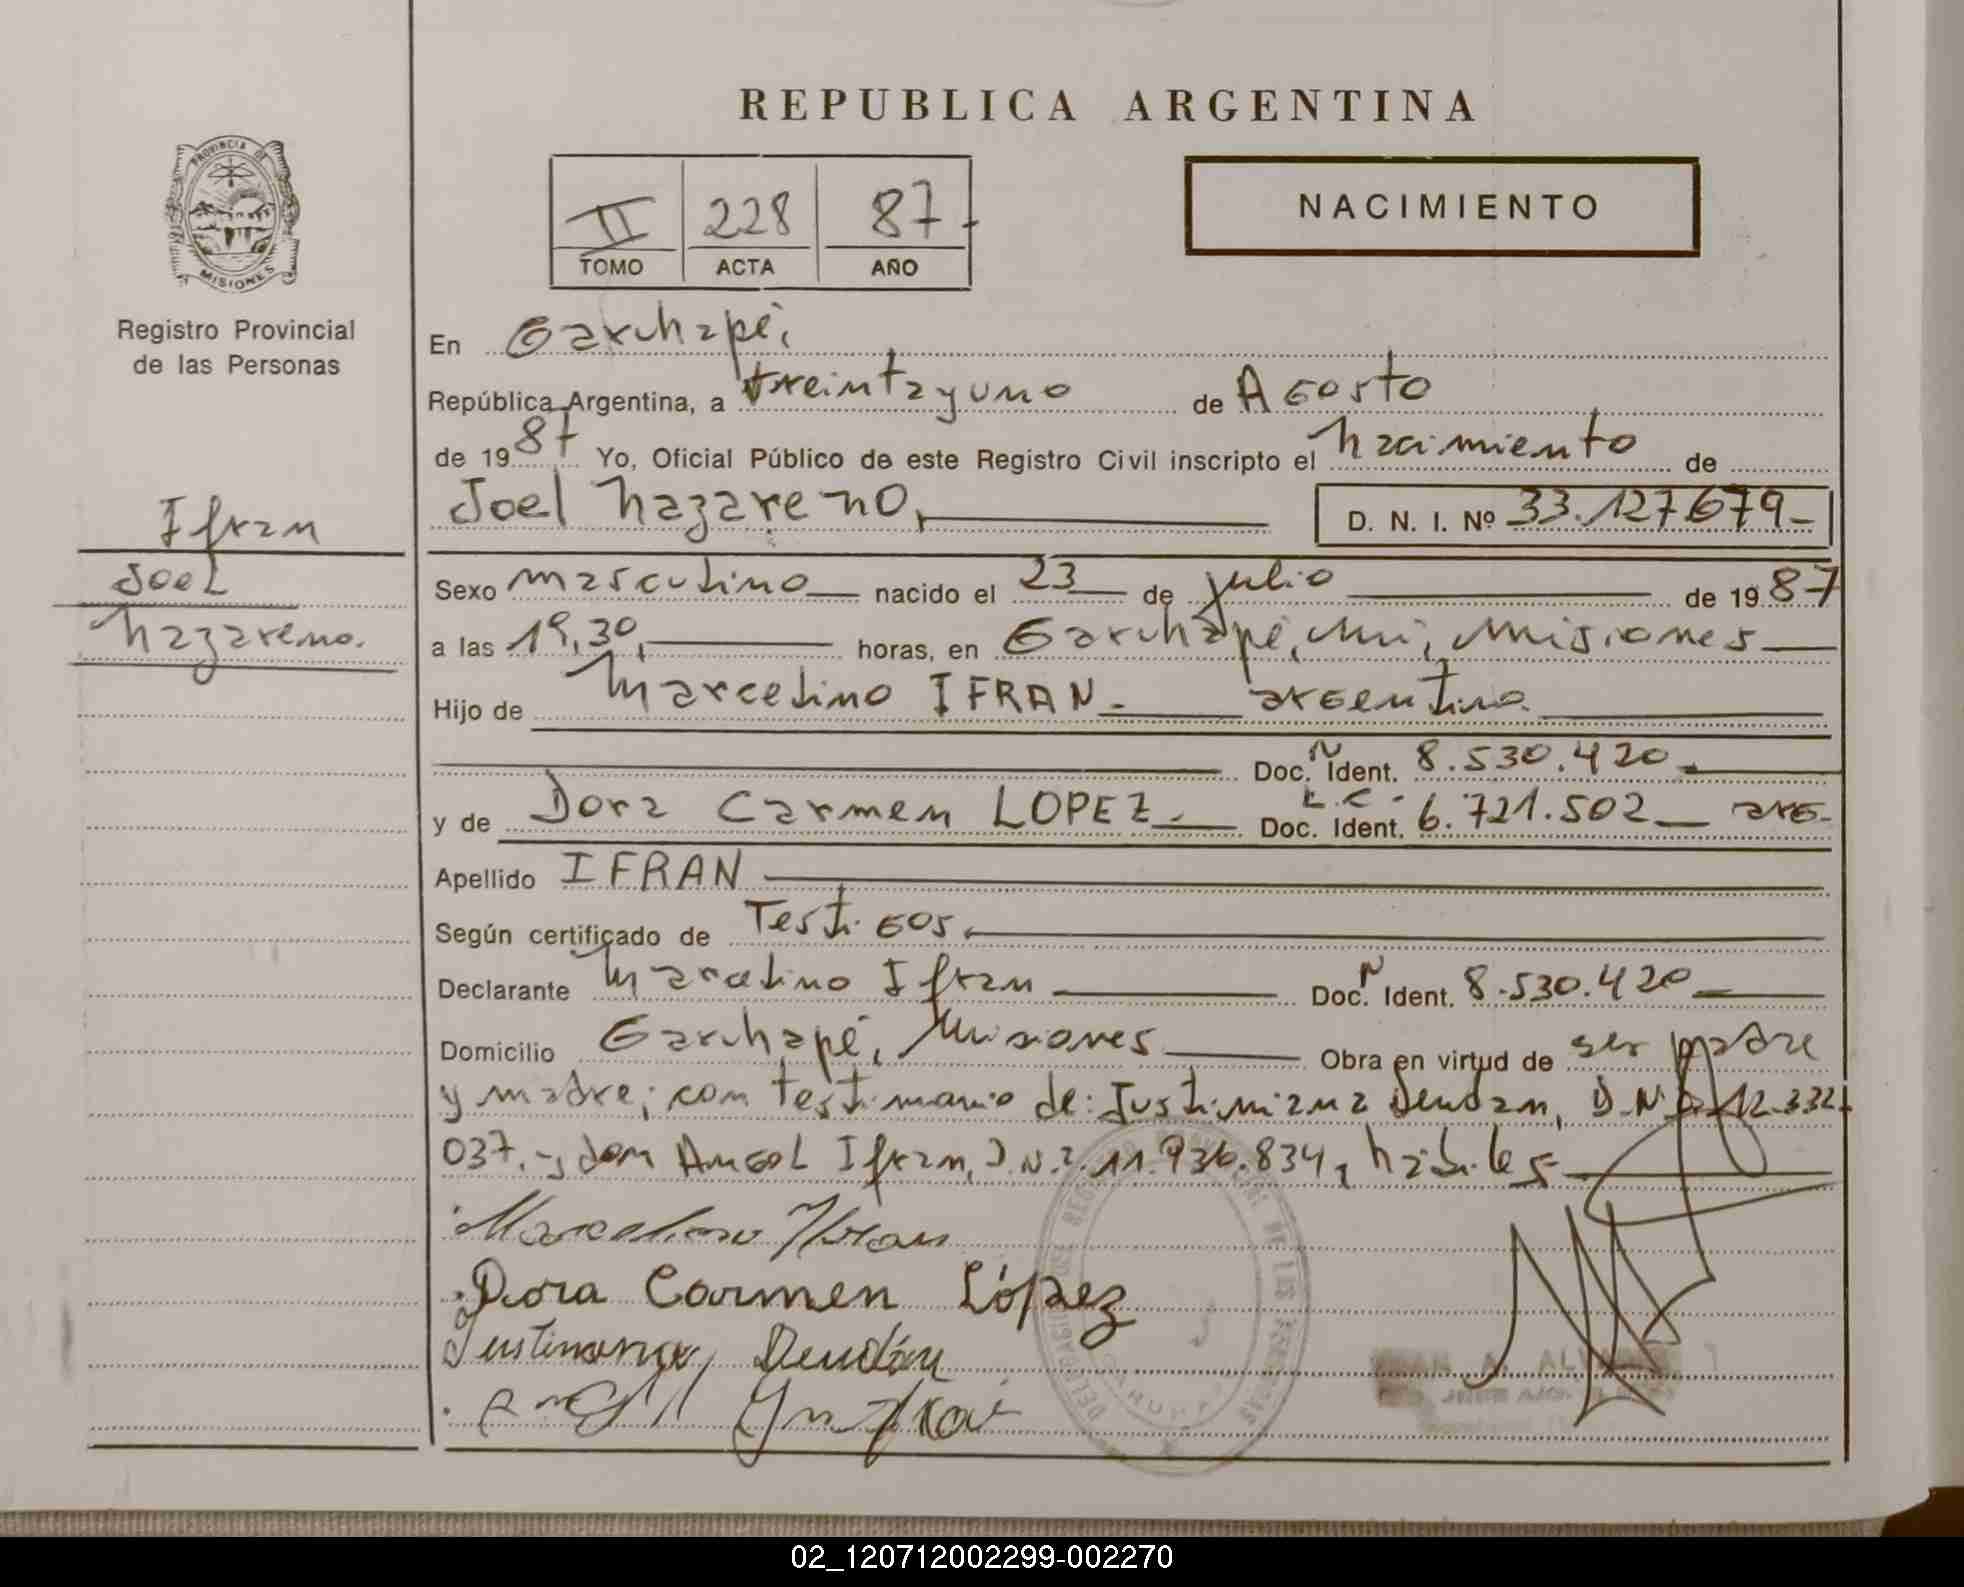 REPUBLICA ARGENTINA
PROVINCIA DE
MISIONES
Registro Provincial
de las Personas
II 228 87-
TOMO ACTA AÑO
NACIMIENTO
En Garuhapé,
República Argentina, a treinta y uno de Agosto
de 1987 Yo, Oficial Público de este Registro Civil inscripto el nacimiento de
Joel Nazareno, D. N. I. Nº 33.127.679-
Ifran
Joel
Nazareno.
Sexo masculino nacido el 23 de julio de 1987
a las 19,30, horas, en Garuhapé, Mi, Misiones
Hijo de Marcelino IFRAN.- argentino
Doc. Ident. 8.530.420.-
y de Dora Carmen LOPEZ.- L.C. Doc. Ident. 6.721.502 arg.
Apellido IFRAN
Según certificado de Testigos.
Declarante Marcelino Ifran Doc. Ident. 8.530.420
Domicilio Garuhapé, Misiones Obra en virtud de ser padre
y madre; con testimonio de: Justiniana Dendan, D.N.I. 12.332.
037.-y don Angel Ifran, D.N.I. 11.936.834, hábiles
Marcelino Ifran
Dora Carmen López
Justiniana Dendán
02_120712002299-002270